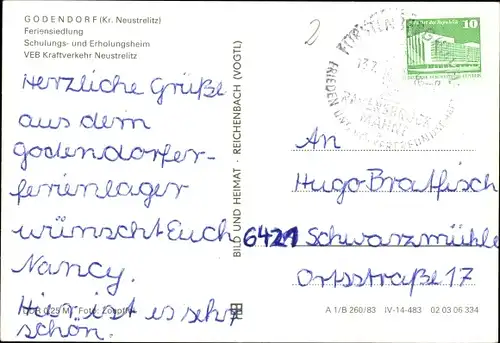 GODENDORF (Kr. Neustrelitz)
Feriensiedlung
Schulungs- und Erholungsheim
VEB Kraftverkehr Neustrelitz
Herzliche Grüße
aus dem
Godendorfer-
ferienlager
wünscht Euch
Nancy.
Hier ist es sehr
schön.
DDR 0,25 M Foto:
BILD UND HEIMAT · REICHENBACH (VOGTL)
10
RAVENSBRÜCK
MAHNT
FRIEDEN UND
An
Hugo Bratfisch
6421 Schwarzmühle
Ortsstraße 17
A 1/B 260/83 IV-14-483 02 03 06 334